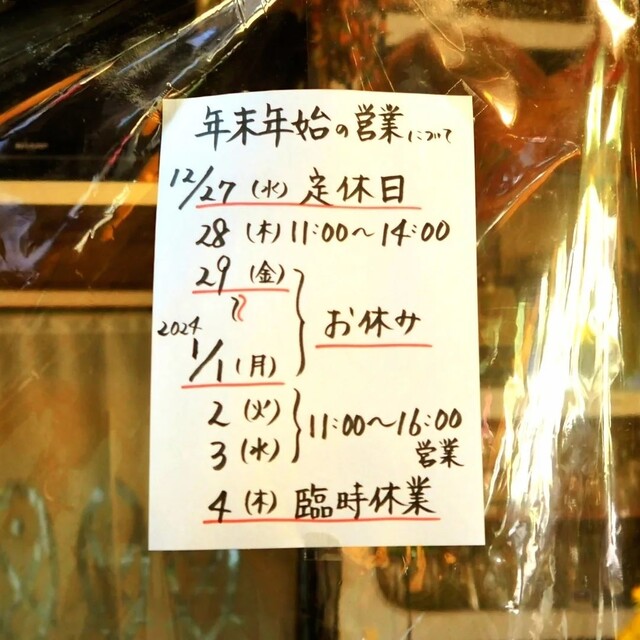 年末年始の営業について
12/27(水) 定休日
28(木) 11:00〜14:00
29(金)
〜
お休み
2024
1/1(月)
2(火)
11:00〜16:00
3(水)
営業
4(木) 臨時休業